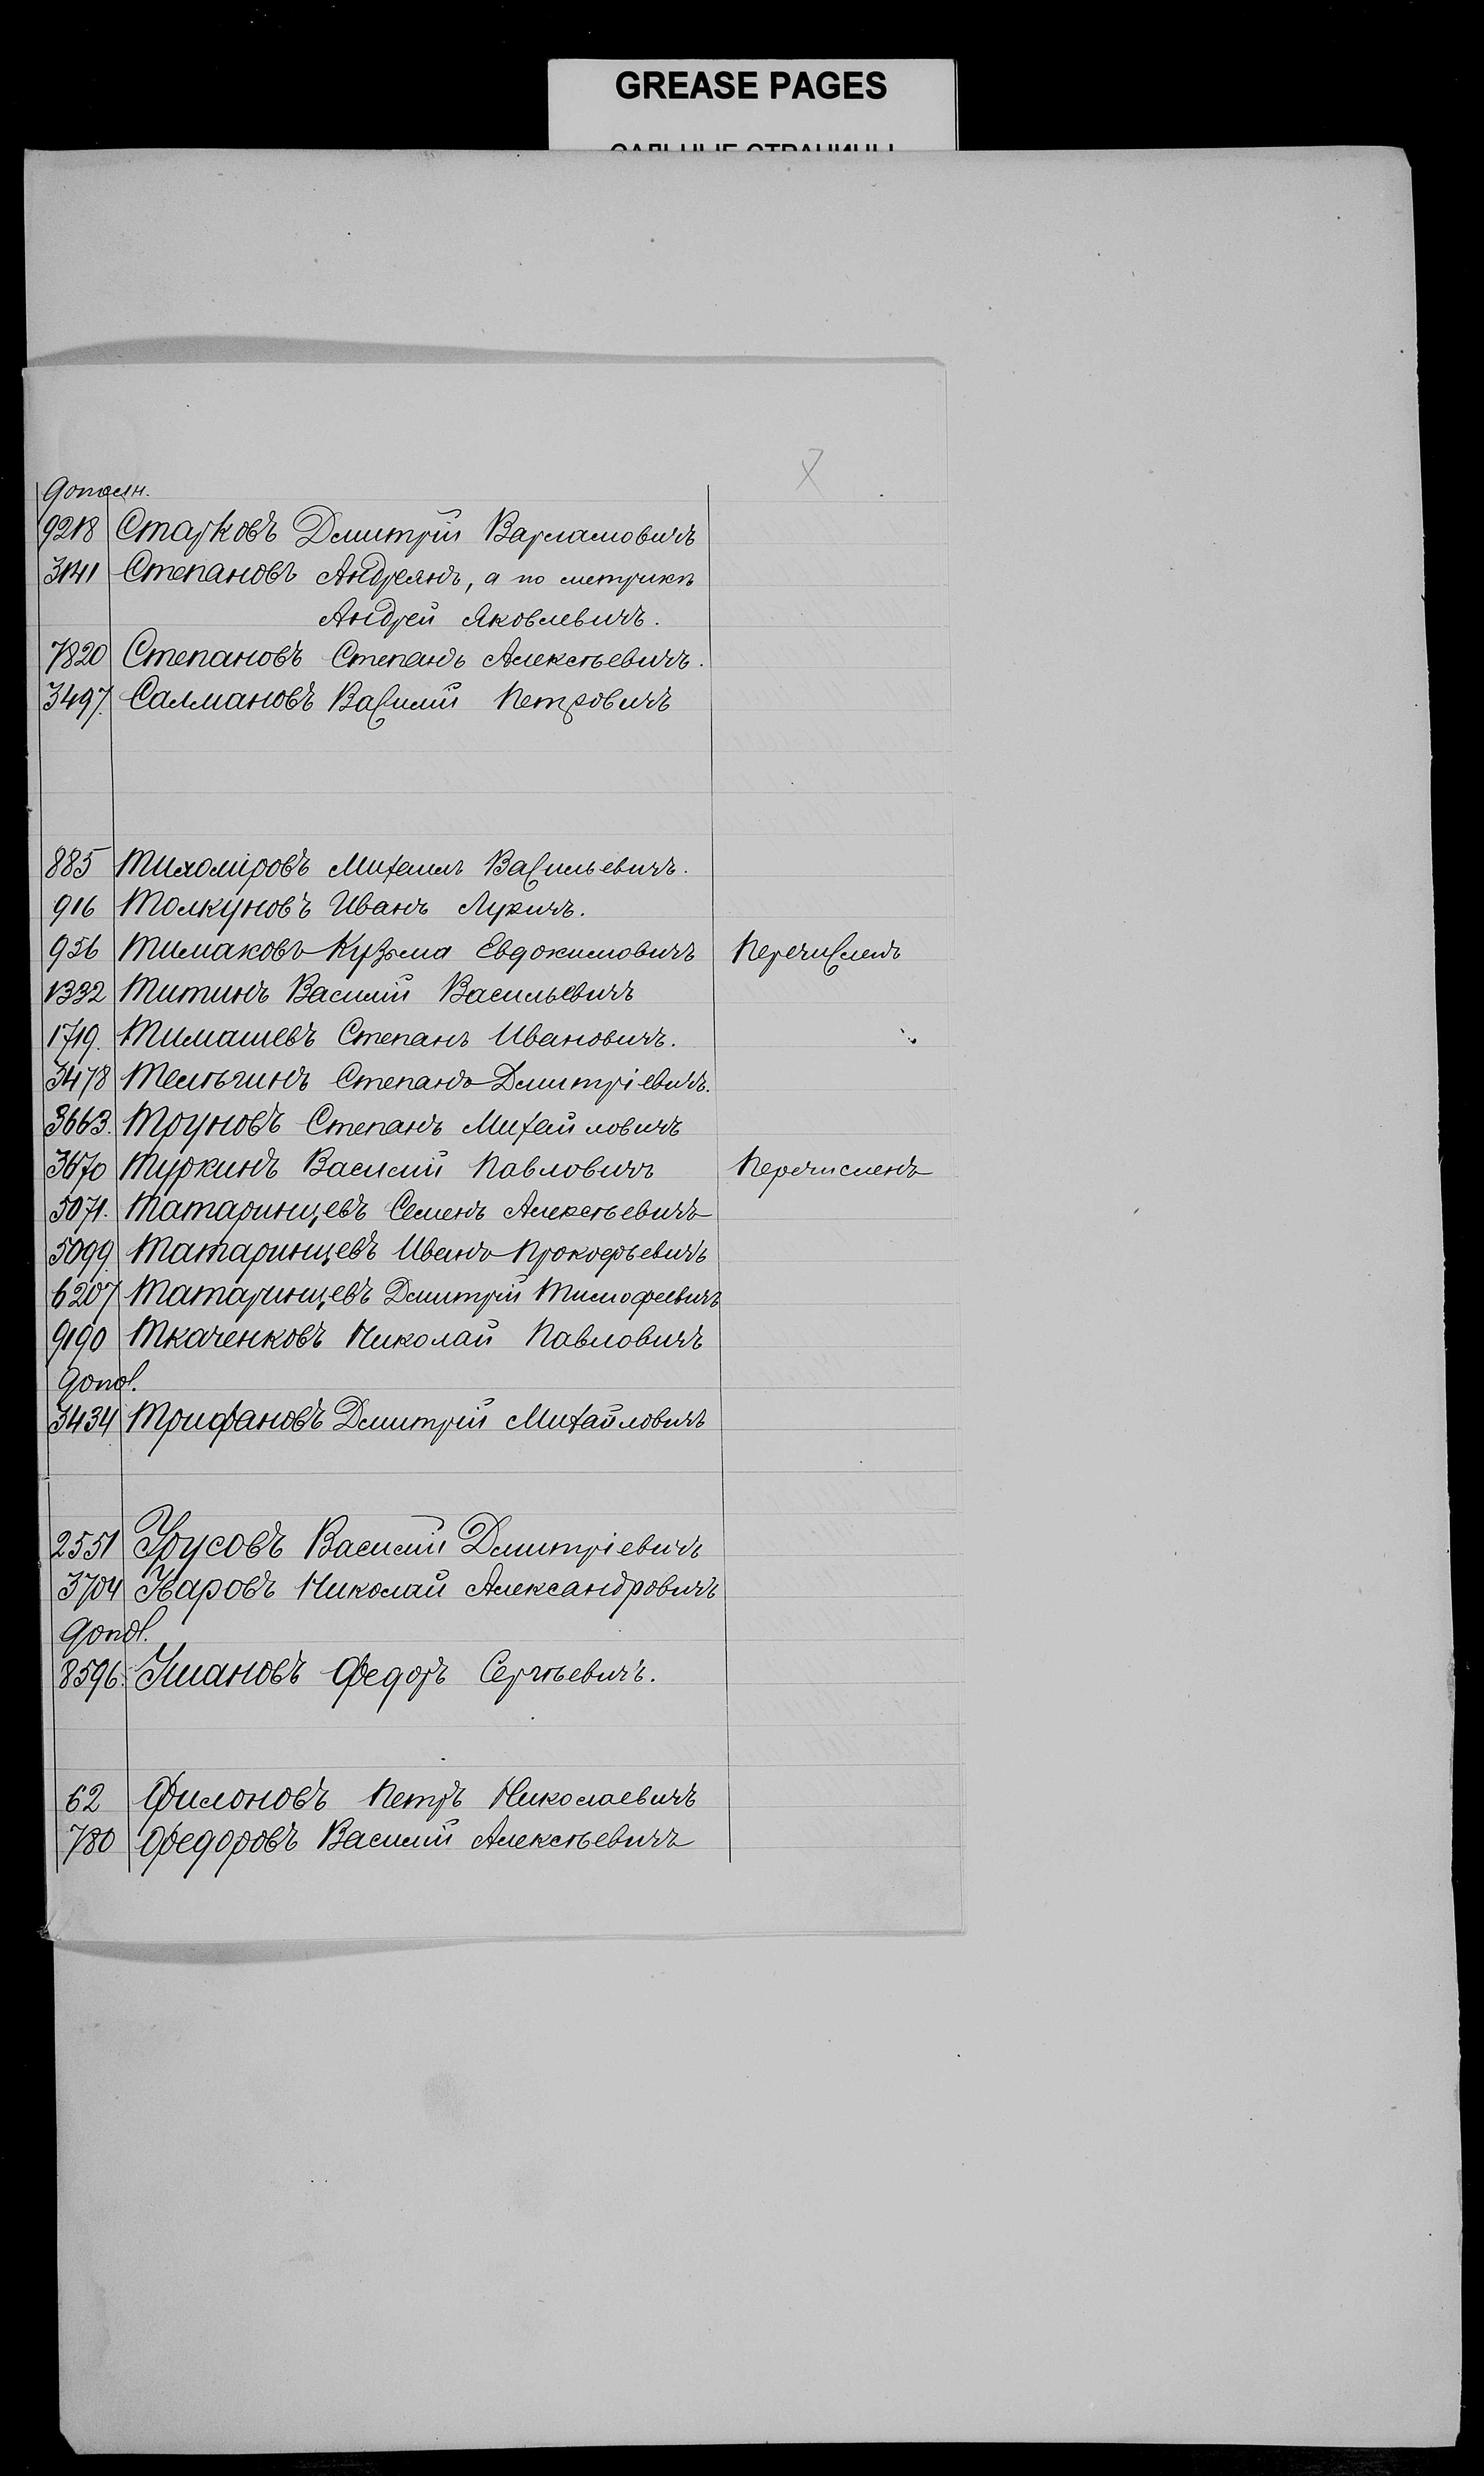 GREASE PAGES
САЛЬНЫЕ СТРАНИЦЫ
7
дополн.
9218 Старковъ Дмитрій Варламовичъ
3141 Степановъ Андреянъ, а по метрикѣ
Андрей Яковлевичъ.
7820 Степановъ Степанъ Алексѣевичъ.
3497. Салмановъ Василій Петровичъ
885 Тихоміровъ Михаилъ Васильевичъ.
916 Толкуновъ Иванъ Лукичъ.
956 Тимаковъ Кузьма Евдокимовичъ Перечисленъ
1332 Титинъ Василій Васильевичъ
1719. Тимашевъ Степанъ Ивановичъ.
3478 Телѣгинъ Степанъ Дмитріевичъ.
3663. Труновъ Степанъ Михайловичъ
3670 Туркинъ Василій Павловичъ Перечисленъ
5071. Татаринцевъ Семенъ Алексѣевичъ
5099 Татаринцевъ Иванъ Прокофьевичъ
6207 Татаринцевъ Дмитрій Тимофеевичъ
9190 Ткаченковъ Николай Павловичъ
допол.
3434 Трифановъ Дмитрій Михайловичъ
2551 Урусовъ Василій Дмитріевичъ
3704 Уваровъ Николай Александровичъ
допол.
8596. Умановъ Федоръ Сергѣевичъ.
62 Филоновъ Петръ Николаевичъ
780 Федоровъ Василій Алексѣевичъ